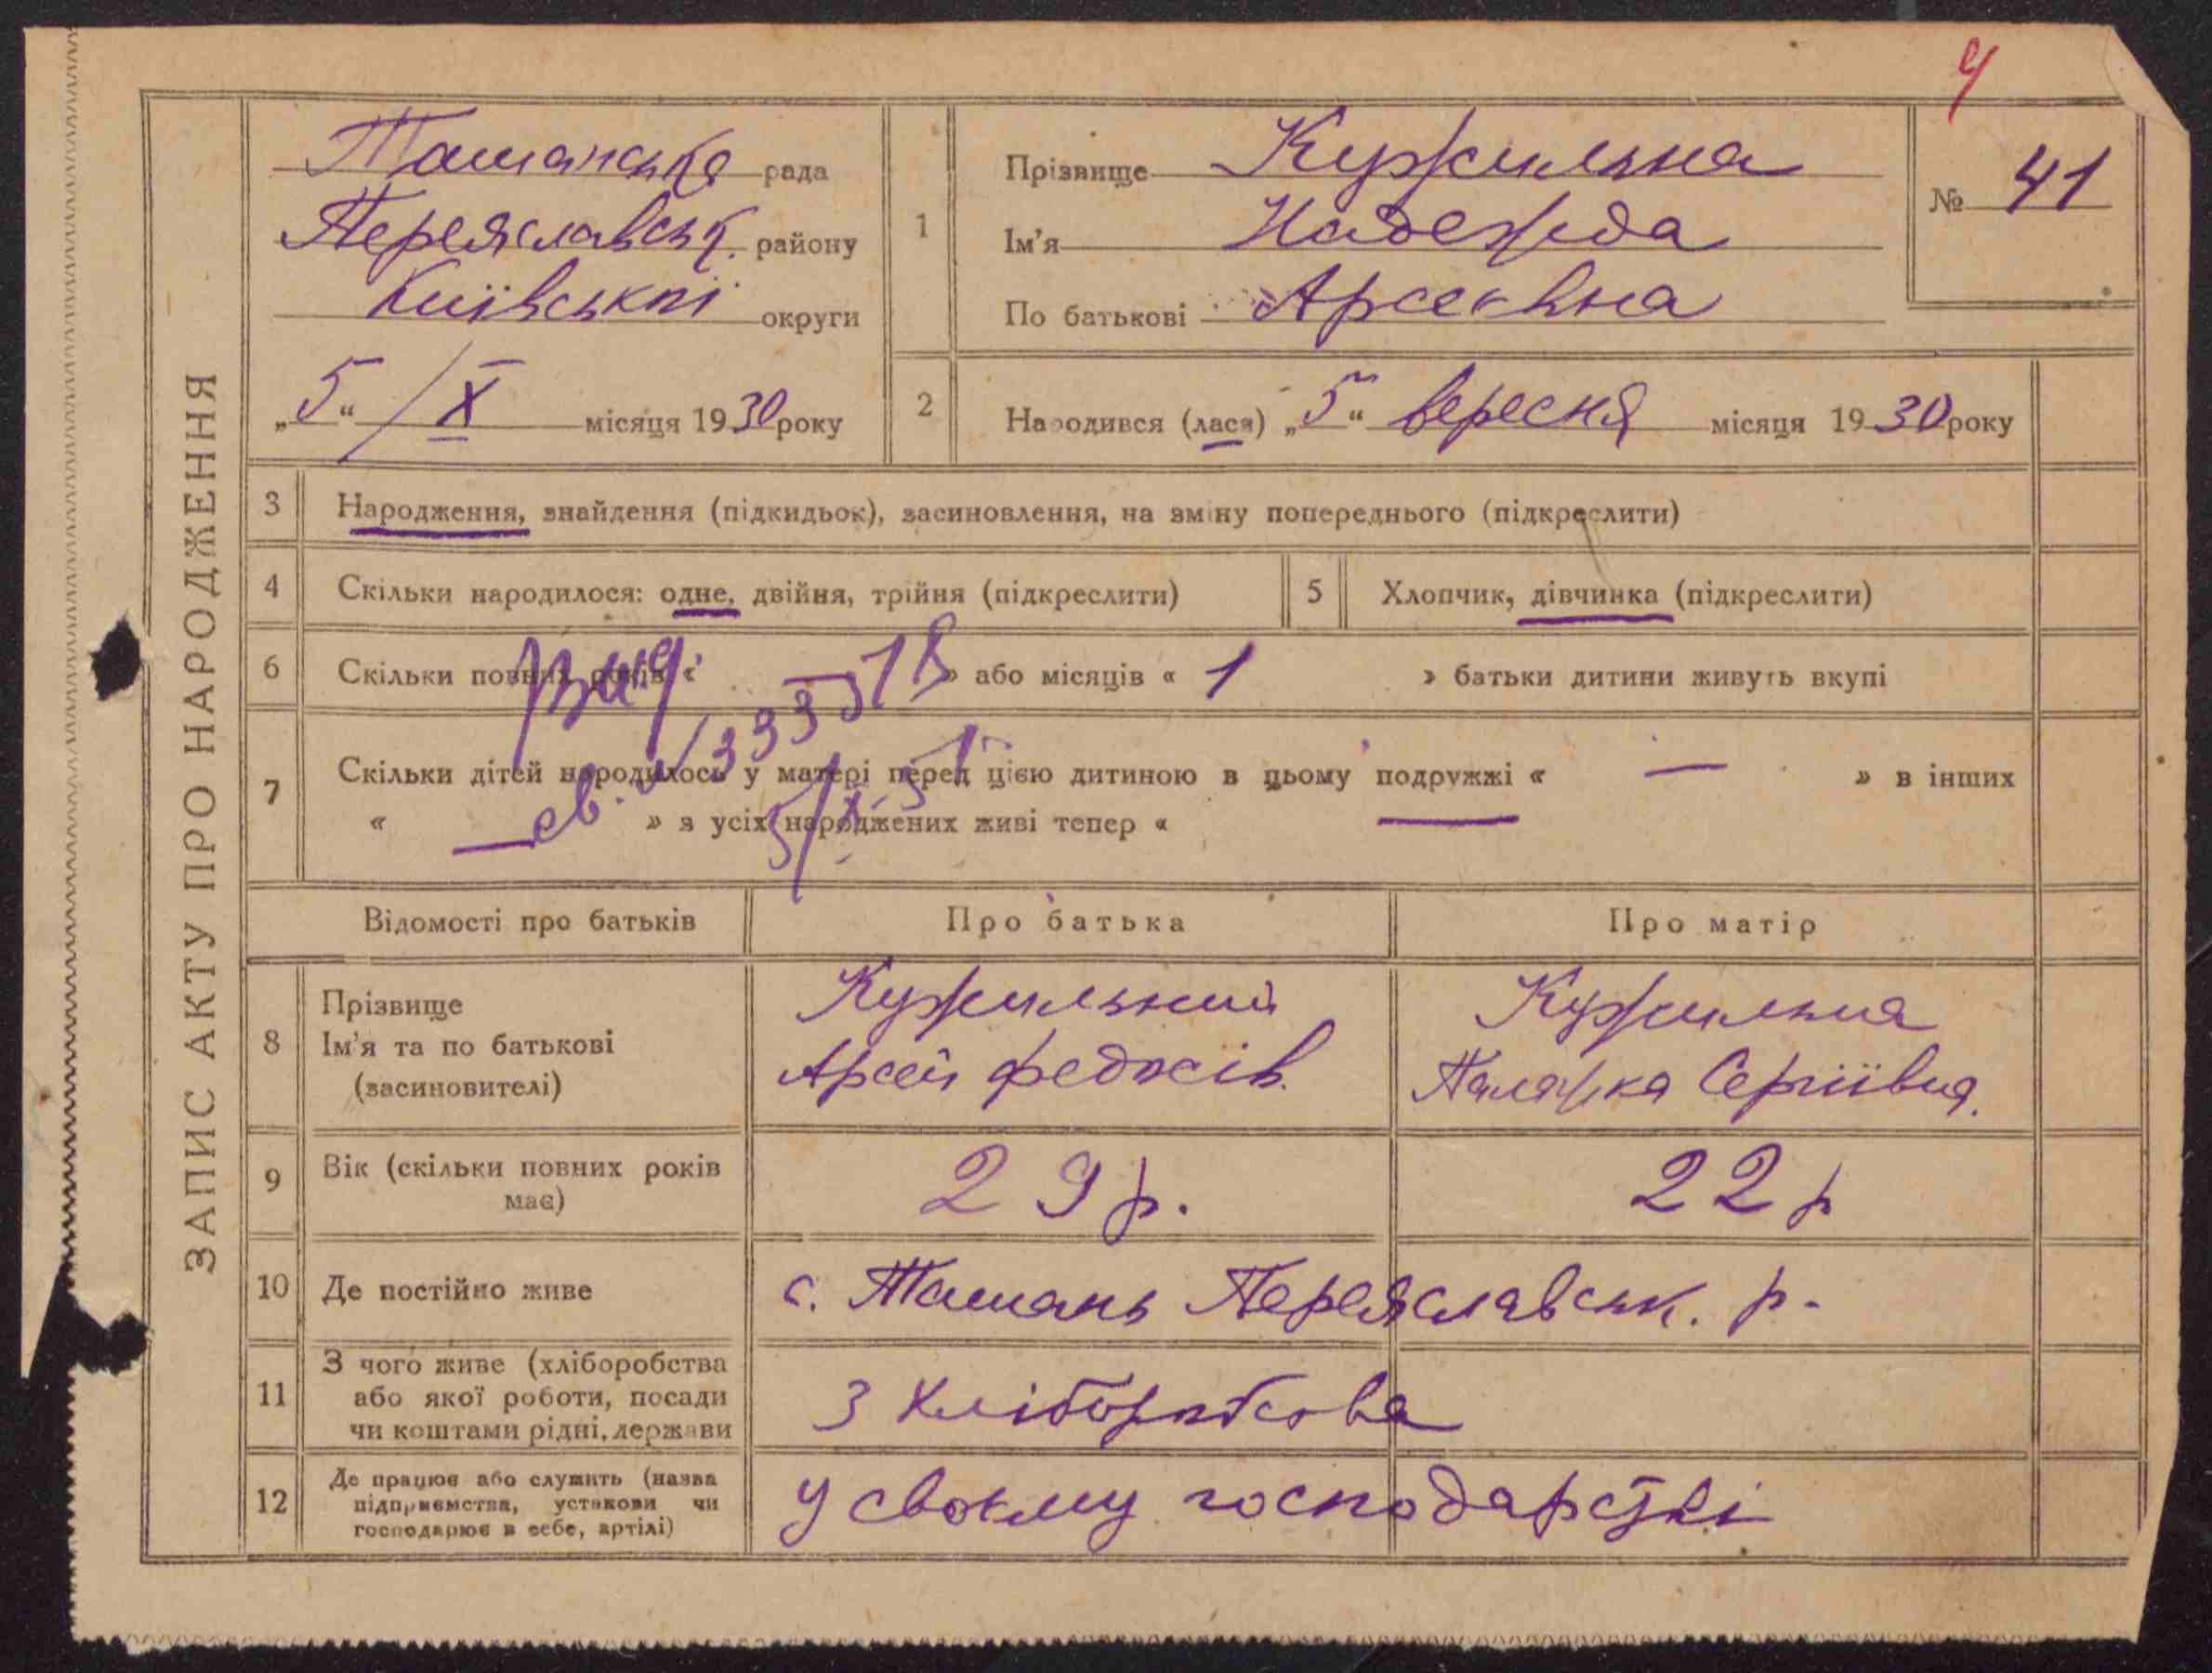 ч
ЗАПИС АКТУ ПРО НАРОДЖЕННЯ
Ташанська рада
Переяславськ. району
Київської округи
„5“ / X місяця 1930 року
1
Прізвище Кужильна
Ім'я Надежда
По батькові Арсеєвна
№ 41
2
Народився (лася) „5“ вересня місяця 1930 року
3 Народження, знайдення (підкидьок), засиновлення, на зміну попереднього (підкреслити)
4 Скільки народилося: одне, двійня, трійня (підкреслити)
5 Хлопчик, дівчинка (підкреслити)
6 Скільки повних років « » або місяців « 1 » батьки дитини живуть вкупі
7 Скільки дітей народилось у матері перед цією дитиною в цьому подружжі « — » в інших
« — » з усіх народжених живі тепер « —
Відомості про батьків Про батька Про матір
8 Прізвище
Ім'я та по батькові
(засиновителі)
Кужильний
Арсей Федосів.
Кужильна
Палажка Сергіївна.
9 Вік (скільки повних років
має)
29 р. 22 р
10 Де постійно живе с. Ташань Переяславськ. р.
11 З чого живе (хліборобства
або якої роботи, посади
чи коштами рідні, держави
З хліборобства
12 Де працює або служить (назва
підприємства, установи чи
господарює в себе, артілі)
У своєму господарстві